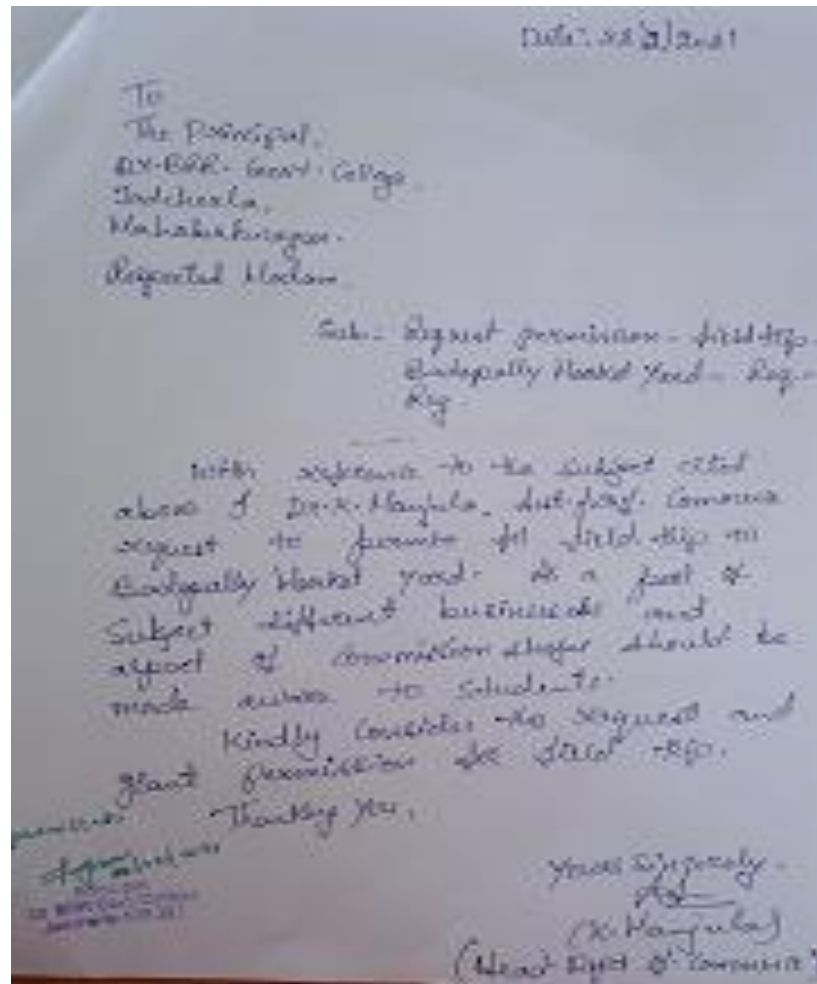 Date: 22/2/2021
To
The Principal,
Dr. BRR. Govt. College.
Jadcherla,
Mahabubnagar.
Respected Madam.
Sub:- Request permission - field trip -
Badepally Market Yard - Req -
Reg -
With reference to the subject cited
above I Dr. K. Manjula, Asst. Prof. Commerce
request to permit for field trip to
Badepally Market yard. As a part of
Subject different businesses and
aspect of commission shops should be
made aware to students.
Kindly consider the request and
grant permission for field trip.
Thanking you,
Yours Sincerely -
(K. Manjula)
(Head Dept of Commerce)